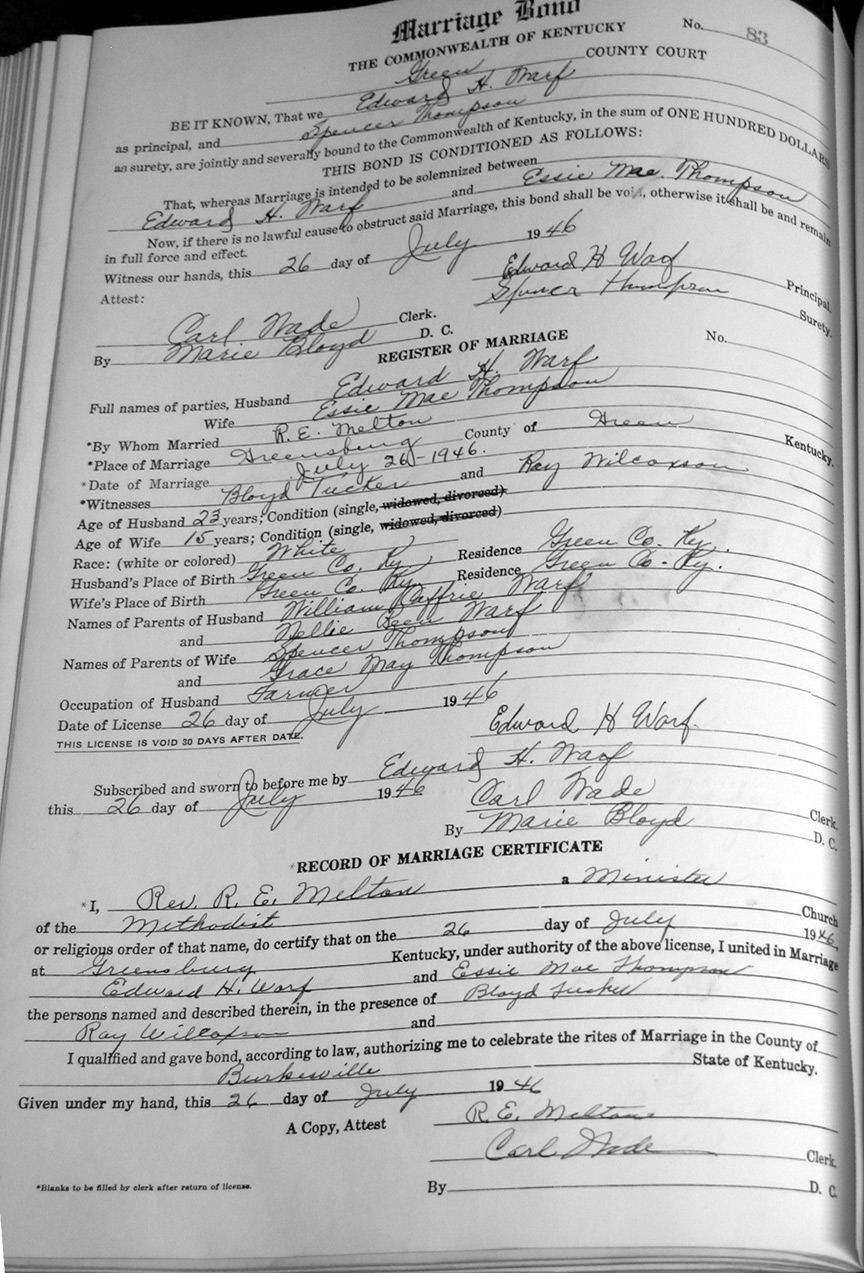 Marriage Bond
No. 83
THE COMMONWEALTH OF KENTUCKY
Green COUNTY COURT
BE IT KNOWN, That we Edward H. Warf
as principal, and Spencer Thompson
as surety, are jointly and severally bound to the Commonwealth of Kentucky, in the sum of ONE HUNDRED DOLLARS
THIS BOND IS CONDITIONED AS FOLLOWS:
That, whereas Marriage is intended to be solemnized between
Edward H. Warf and Essie Mae Thompson
Now, if there is no lawful cause to obstruct said Marriage, this bond shall be void, otherwise it shall be and remain
in full force and effect.
Witness our hands, this 26 day of July 1946
Edward H Warf Principal.
Attest: Spencer Thompson Surety.
Carl Wade Clerk.
By Marie Bloyd D. C.
REGISTER OF MARRIAGE No.
Full names of parties, Husband Edward H. Warf
Wife Essie Mae Thompson
*By Whom Married R. E. Melton
*Place of Marriage Greensburg County of Green Kentucky.
*Date of Marriage July 26-1946.
*Witnesses Bloyd Tucker and Ray Wilcoxson
Age of Husband 23 years; Condition (single, widowed, divorced)
Age of Wife 15 years; Condition (single, widowed, divorced)
Race: (white or colored) White
Husband's Place of Birth Green Co. Ky. Residence Green Co. Ky.
Wife's Place of Birth Green Co. Ky. Residence Green Co. Ky.
Names of Parents of Husband William Warf
and Nellie Warf
Names of Parents of Wife Spencer Thompson
and Grace May Thompson
Occupation of Husband Farmer
Date of License 26 day of July 1946
THIS LICENSE IS VOID 30 DAYS AFTER DATE.
Edward H Warf.
Subscribed and sworn to before me by Edward H. Warf
this 26 day of July 1946 Carl Wade Clerk.
By Marie Bloyd D. C.
*RECORD OF MARRIAGE CERTIFICATE
*I, Rev. R. E. Melton a Minister
of the Methodist Church
or religious order of that name, do certify that on the 26 day of July 1946,
at Greensburg Kentucky, under authority of the above license, I united in Marriage
Edward H. Warf and Essie Mae Thompson
the persons named and described therein, in the presence of Bloyd Tucker
Ray Wilcoxson and
I qualified and gave bond, according to law, authorizing me to celebrate the rites of Marriage in the County of
Burkesville State of Kentucky.
Given under my hand, this 26 day of July 1946
R. E. Melton
A Copy, Attest
Carl Wade Clerk.
*Blanks to be filled by clerk after return of license.
By D. C.